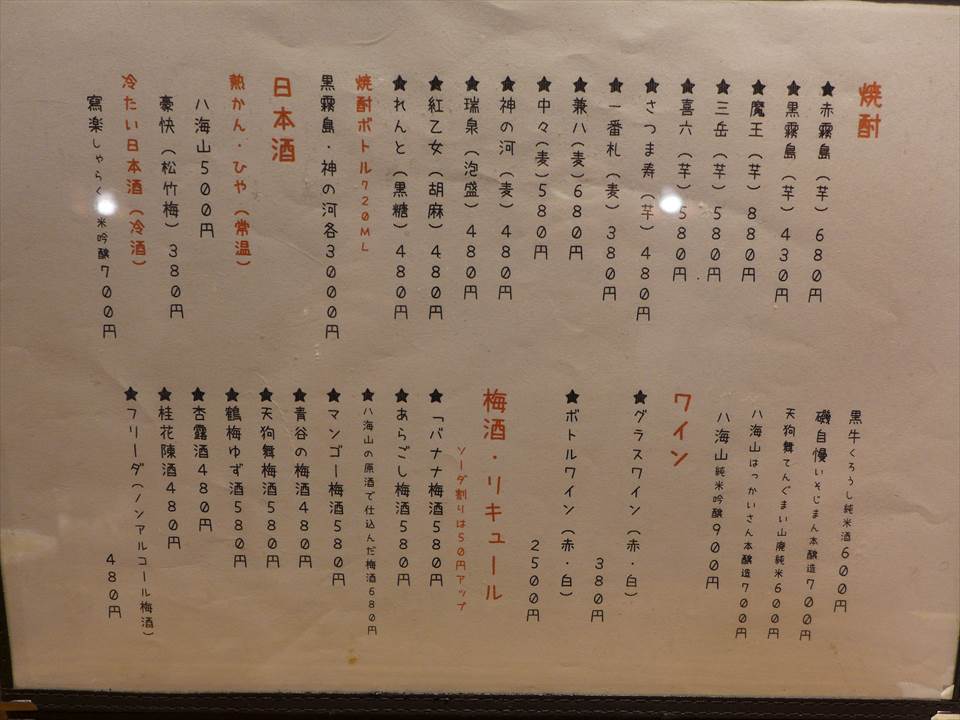 焼酎
★赤霧島（芋）680円
★黒霧島（芋）430円
★魔王（芋）880円
★三岳（芋）580円
★喜六（芋）580円
★さつま寿（芋）480円
★一番札（麦）380円
★兼八（麦）680円
★中々（麦）580円
★神の河（麦）480円
★瑞泉（泡盛）480円
★紅乙女（胡麻）480円
★れんと（黒糖）480円
焼酎ボトル720ML
黒霧島・神の河各3000円
日本酒
熱かん・ひや（常温）
八海山500円
豪快（松竹梅）380円
冷たい日本酒（冷酒）
寫楽しゃらく 米吟醸700円
黒牛くろうし純米酒600円
磯自慢いそじまん本醸造700円
天狗舞てんぐまい山廃純米600円
八海山はっかいさん本醸造700円
八海山純米吟醸900円
ワイン
★グラスワイン（赤・白）
380円
★ボトルワイン（赤・白）
2500円
梅酒・リキュール
ソーダ割りは50円アップ
★「バナナ梅酒580円
★あらごし梅酒580円
★八海山の原酒で仕込んだ梅酒680円
★マンゴー梅酒580円
★青谷の梅酒480円
★天狗舞梅酒580円
★鶴梅ゆず酒580円
★杏露酒480円
★桂花陳酒480円
★フリーダ（ノンアルコール梅酒）
480円